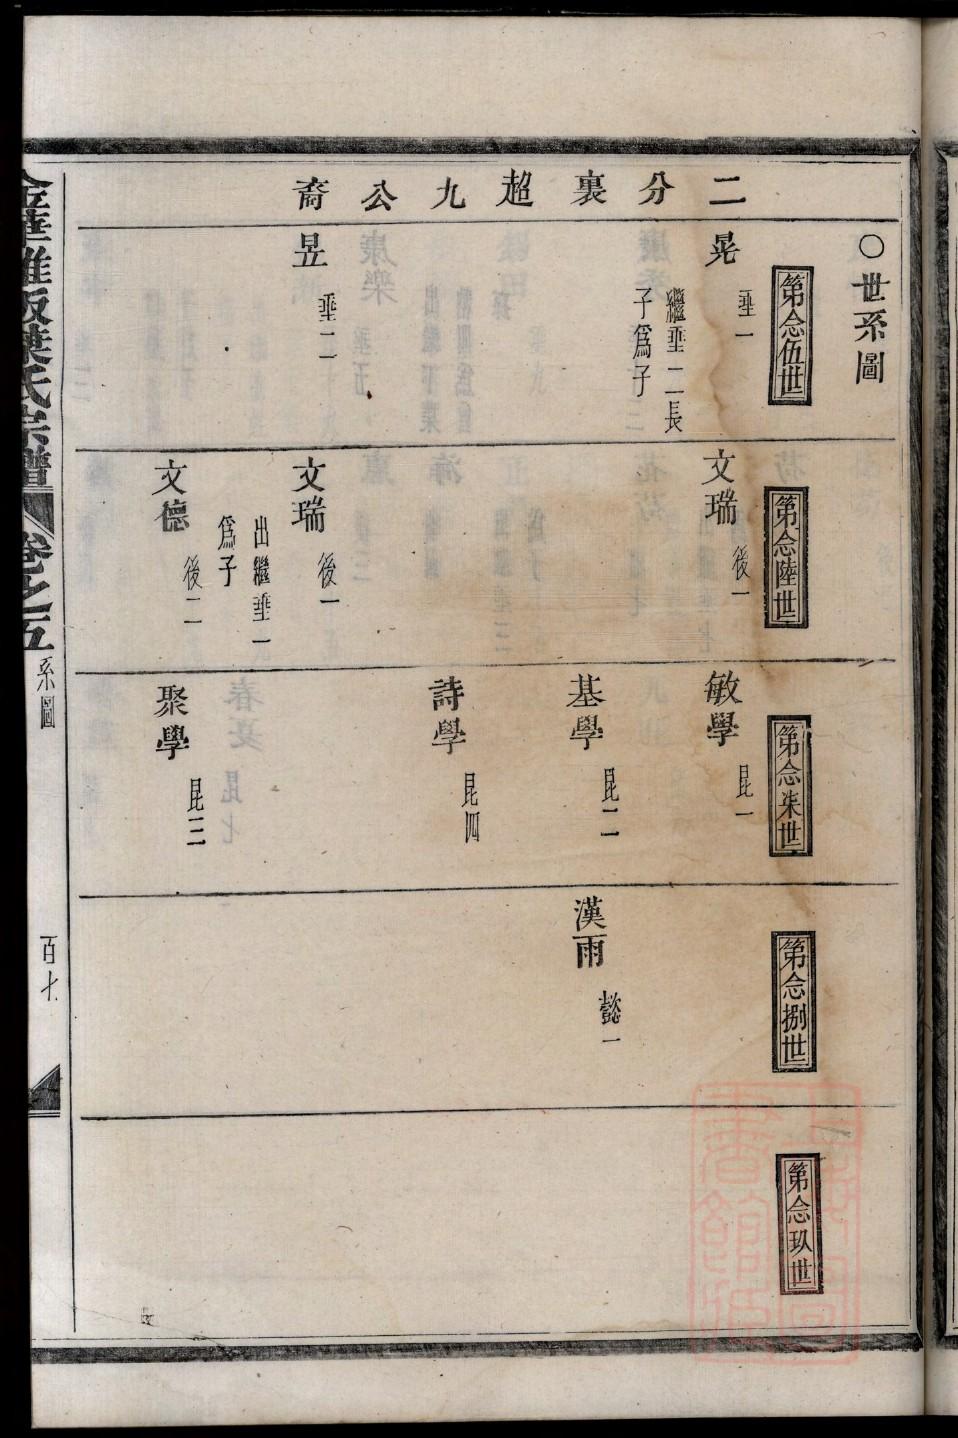 二分裏超九公裔
○世系圖
第念伍世
晃
垂一
繼垂二長
子爲子
昱
垂二
第念陸世
文瑞
後一
文瑞
後一
出繼垂一
爲子
文德
後二
第念柒世
敏學
昆一
基學
昆二
詩學
昆四
聚學
昆三
第念捌世
漢雨
懿一
第念玖世
葉氏宗譜
卷之五
系圖
百七